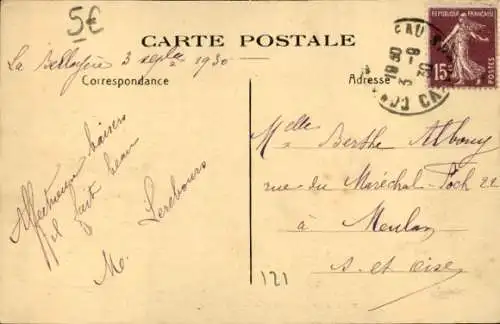 5€
CARTE POSTALE
3 sept. 1930
Correspondance
Adresse
REPUBLIQUE FRANÇAISE
15c
POSTES
19 30
3 - 9
30
Affectueux baisers
il fait beau
M. Lerebours
Melle Berthe Albouy
rue du Maréchal-Foch 22
à Meulan
S. et Oise
121